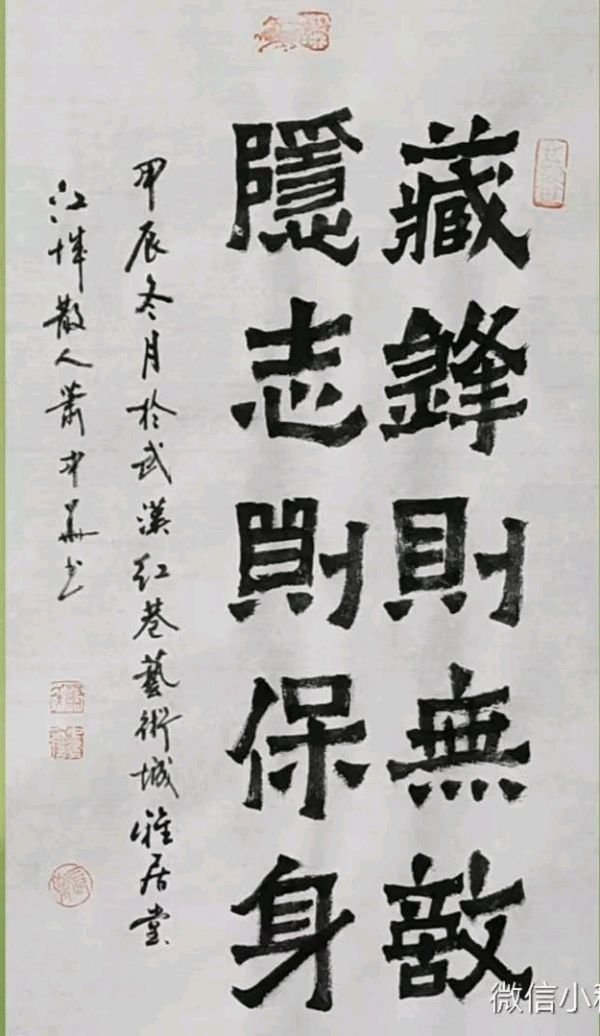 藏鋒則無敵
隱志則保身
甲辰冬月於武漢紅巷藝術城雅居堂
江城散人蕭才華書
微信小